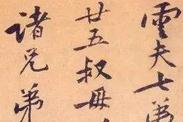 雲夫七弟
廿五叔母
諸兄弟